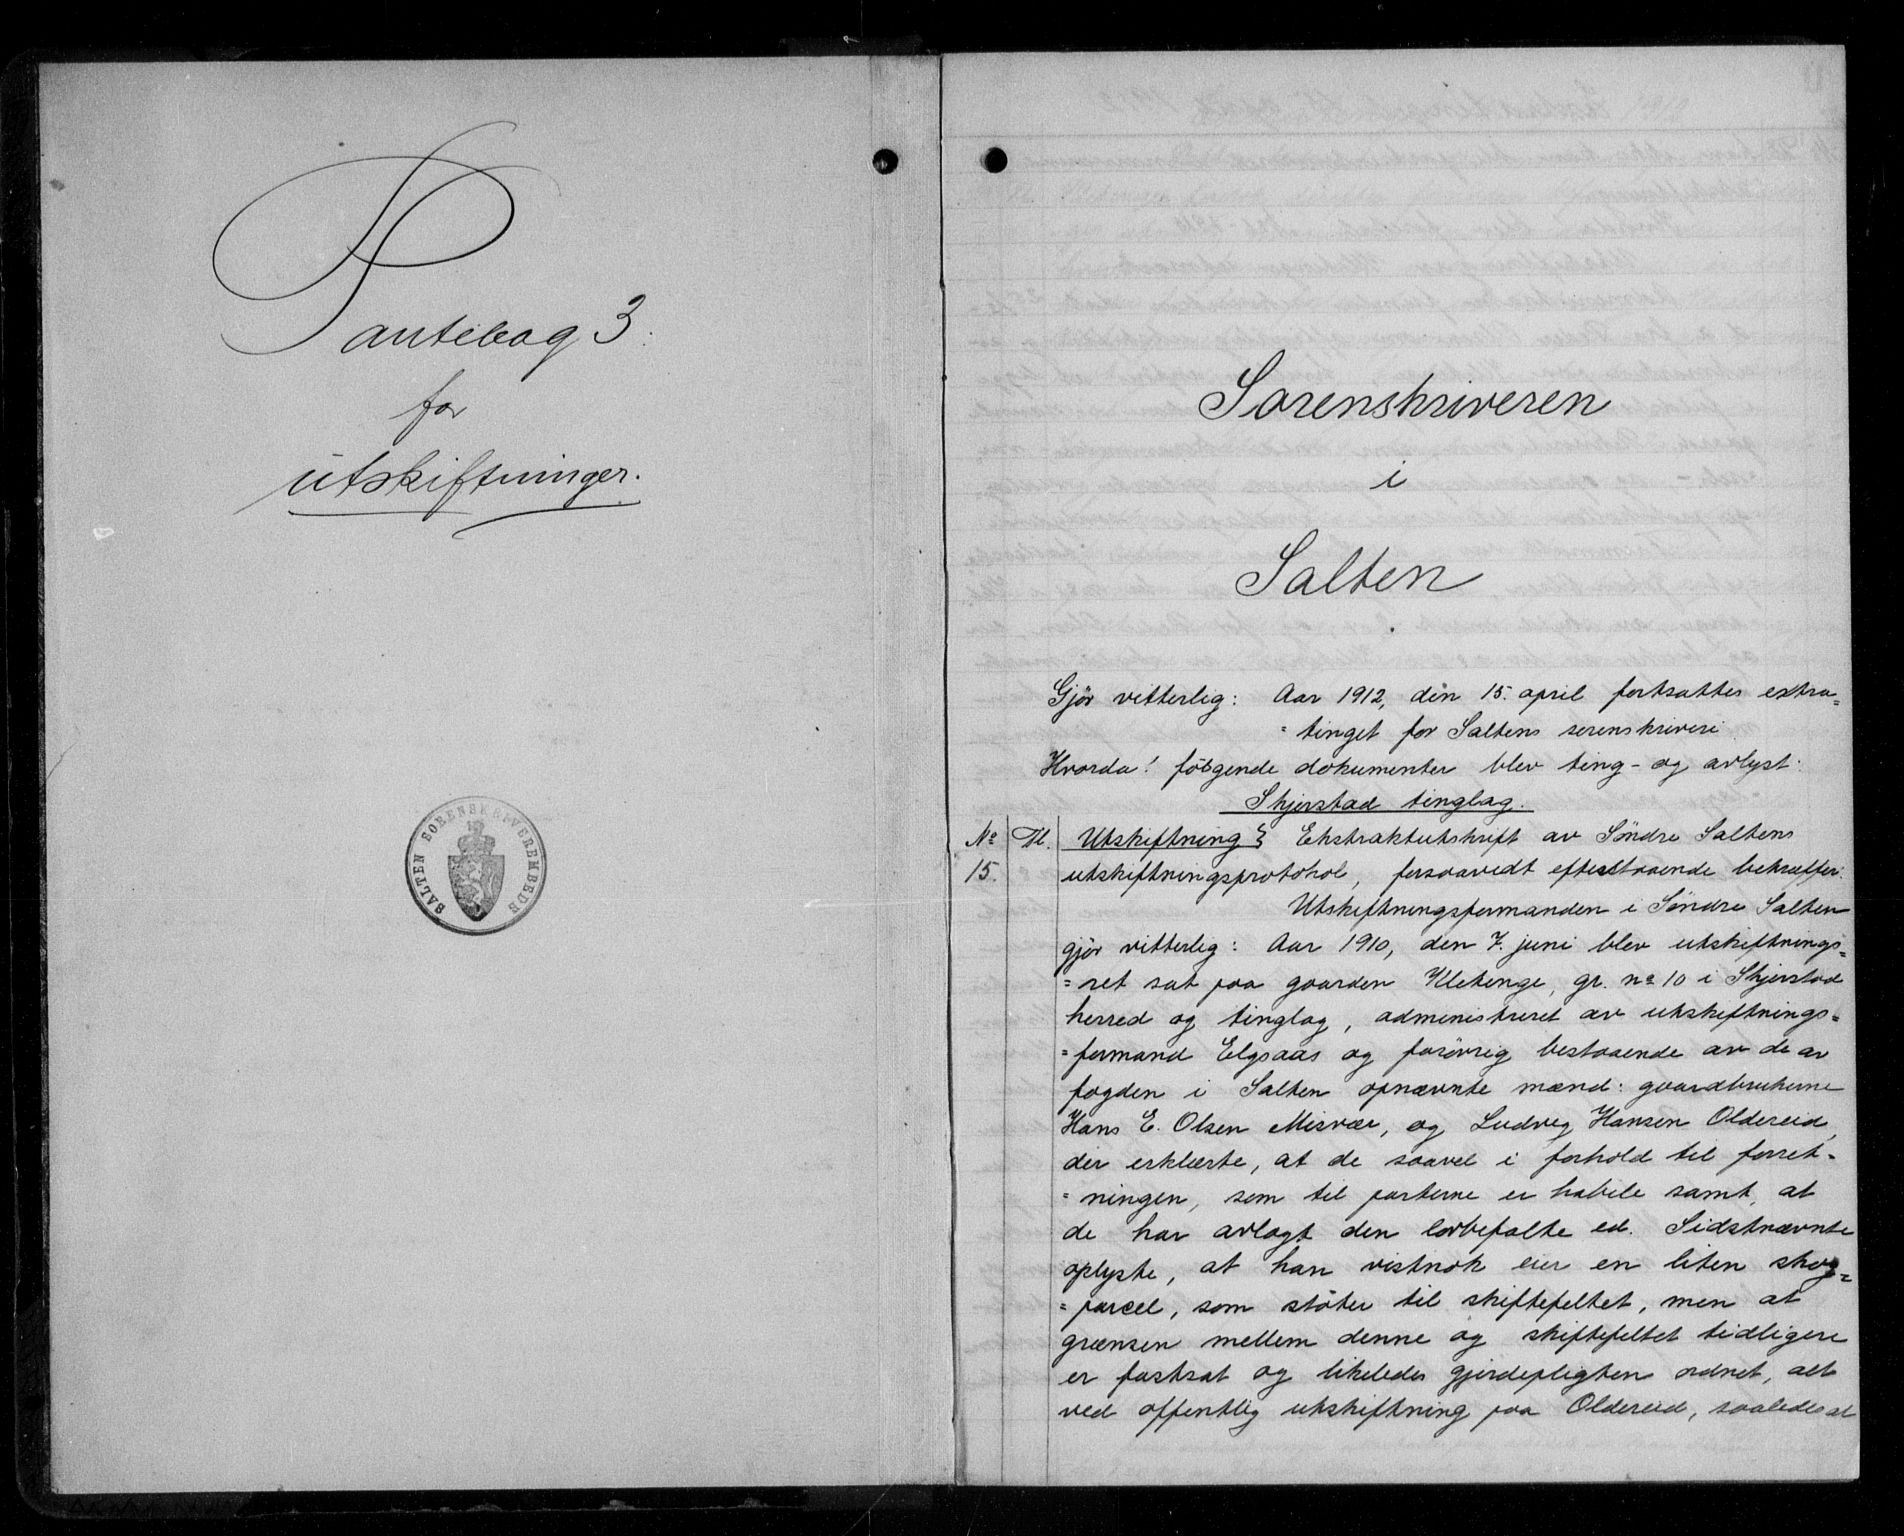 Pantebog 3.
for
utskiftninger.
SALTEN SORENSKRIVEREMBEDE
Sorenskriveren
i
Salten
Gjör vitterlig: Aar 1912, den 15. april fortsattes extra=
=tinget for Saltens sorenskriveri
Hvorda! fölgende dokumenter blev ting- og avlyst:
Skjerstad tinglag.
No Dl. Utskiftning Ekstraktutskrift av Söndre Saltens
15. utskiftningsprotokol, forsaavidt efterstaaende betræffer:
Utskiftningsformanden i Söndre Salten
gjör vitterlig: Aar 1910, den 7. juni blev utskiftnings=
=ret sat paa gaarden Kletenge, gr. no 10 i Skjerstad
herred og tinglag, administreret av utskiftnings=
=formand Elgsaas og forövrig bestaaende av de av
fogden i Salten opnævnte mænd: gaardbrukerne
Hans E. Olsen Misvær, og Ludvig Hansen Oldereid,
der erklærte, at de saavel i forhold til forret-
=ningen, som til parterne er habile samt, at
de har avlagt den lovbefalte ed. Sidstnævnte
oplyste, at han vistnok eier en liten skog=
=parcel, som stöter til skiftefeltet, men at
grænsen mellem denne og skiftefeltet tidligere
er fastsat og likeledes gjerdepligten ordnet, alt
ved offentlig utskiftning paa Oldereid, saaledes at